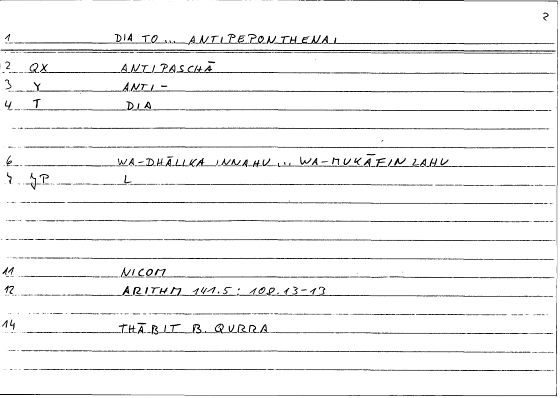 2
1 DIA TO... ANTIPEPONTHENAI
2 QX ANTIPASCHĀ
3 Y ANTI-
4 T DIA
6 WA-DHĀLIKA INNAHU... WA-MUKĀFIN LAHU
7 JP L
11 NICOM
12 ARITHM 141.5: 108.13-13
14 THĀBIT B. QURRA